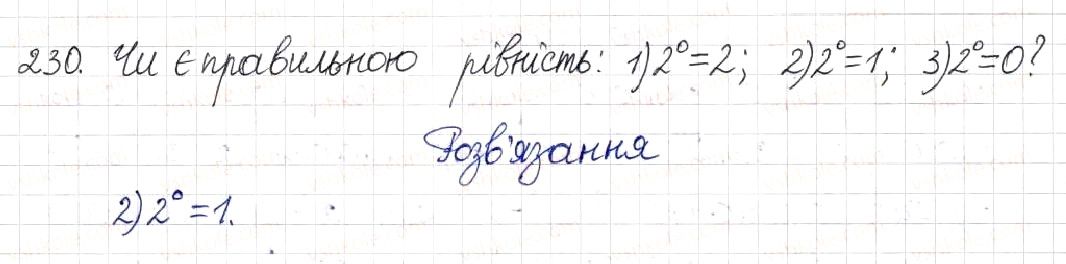 230. Чи є правильною рівність: 1) 2⁰=2; 2) 2⁰=1; 3) 2⁰=0?
Розв'язання
2) 2⁰=1.